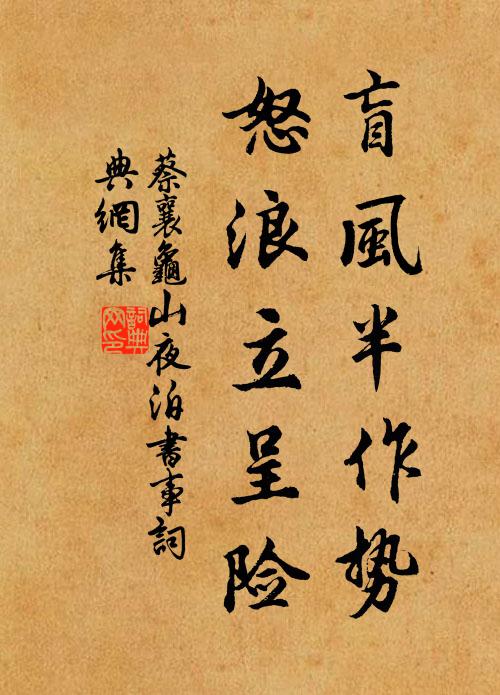 盲風半作势
怒浪立呈险
蔡襄龜山夜泊書事詞
典網集
詞典网印